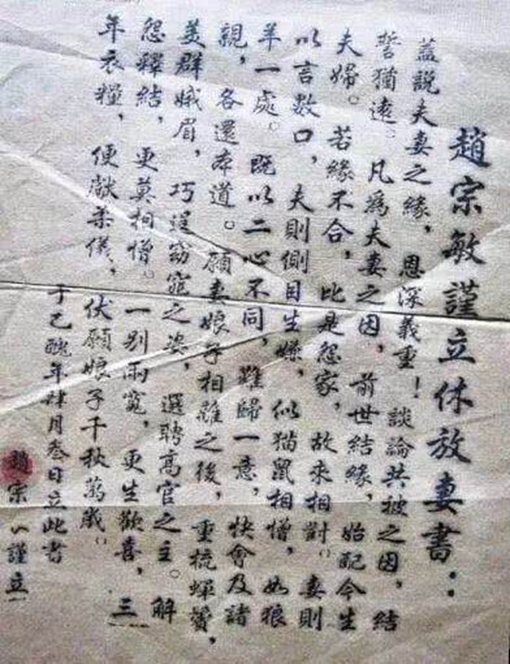 趙宗敏謹立休放妻書:
蓋說夫妻之緣，恩深義重！談論共被之因，結
誓猶遠。凡為夫妻之因，前世結緣，始配今生
夫婦。若緣不合，比是怨家，故來相對。妻則
以言數口，夫則側目生嫌，似猫鼠相憎，如狼
羊一處。既以二心不同，難歸一意，快會及諸
親，各還本道。願妻娘子相離之後，重梳蟬鬢，
美群娥眉，巧逞窈窕之姿，選聘高官之主。解
怨釋結，更莫相憎。一別兩寬，更生歡喜，三
年衣糧，便獻柔儀，伏願娘子千秋萬歲。
于乙醜年肆月叁日立此書
趙宗 謹立